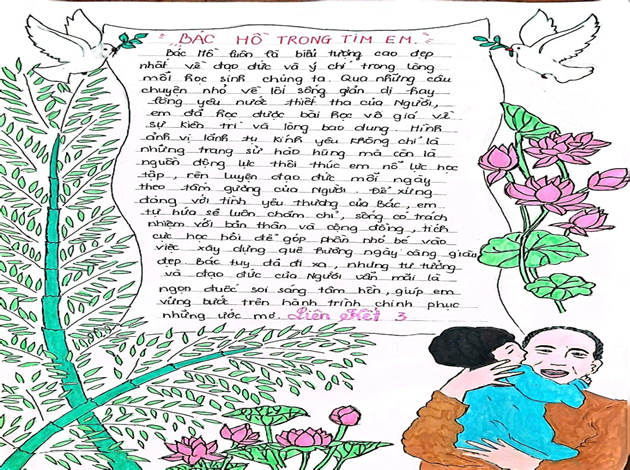 BÁC HỒ TRONG TIM EM.
Bác Hồ luôn là biểu tượng cao đẹp
nhất về đạo đức và ý chí trong lòng
mỗi học sinh chúng ta. Qua những câu
chuyện nhỏ về lối sống giản dị hay
lòng yêu nước thiết tha của Người,
em đã học được bài học vô giá về
sự kiên trì và lòng bao dung. Hình
ảnh vị lãnh tụ kính yêu không chỉ là
những trang sử hào hùng mà còn là
nguồn động lực thôi thúc em nỗ lực học
tập, rèn luyện đạo đức mỗi ngày
theo tấm gương của Người. Để xứng
đáng với tình yêu thương của Bác, em
tự hứa sẽ luôn chăm chỉ, sống có trách
nhiệm với bản thân và cộng đồng, tích
cực học hỏi để góp phần nhỏ bé vào
việc xây dựng quê hương ngày càng giàu
đẹp. Bác tuy đã đi xa, nhưng tư tưởng
và đạo đức của Người vẫn mãi là
ngọn đuốc soi sáng tâm hồn, giúp em
vững bước trên hành trình chinh phục
những ước mơ. Liên Kết 3